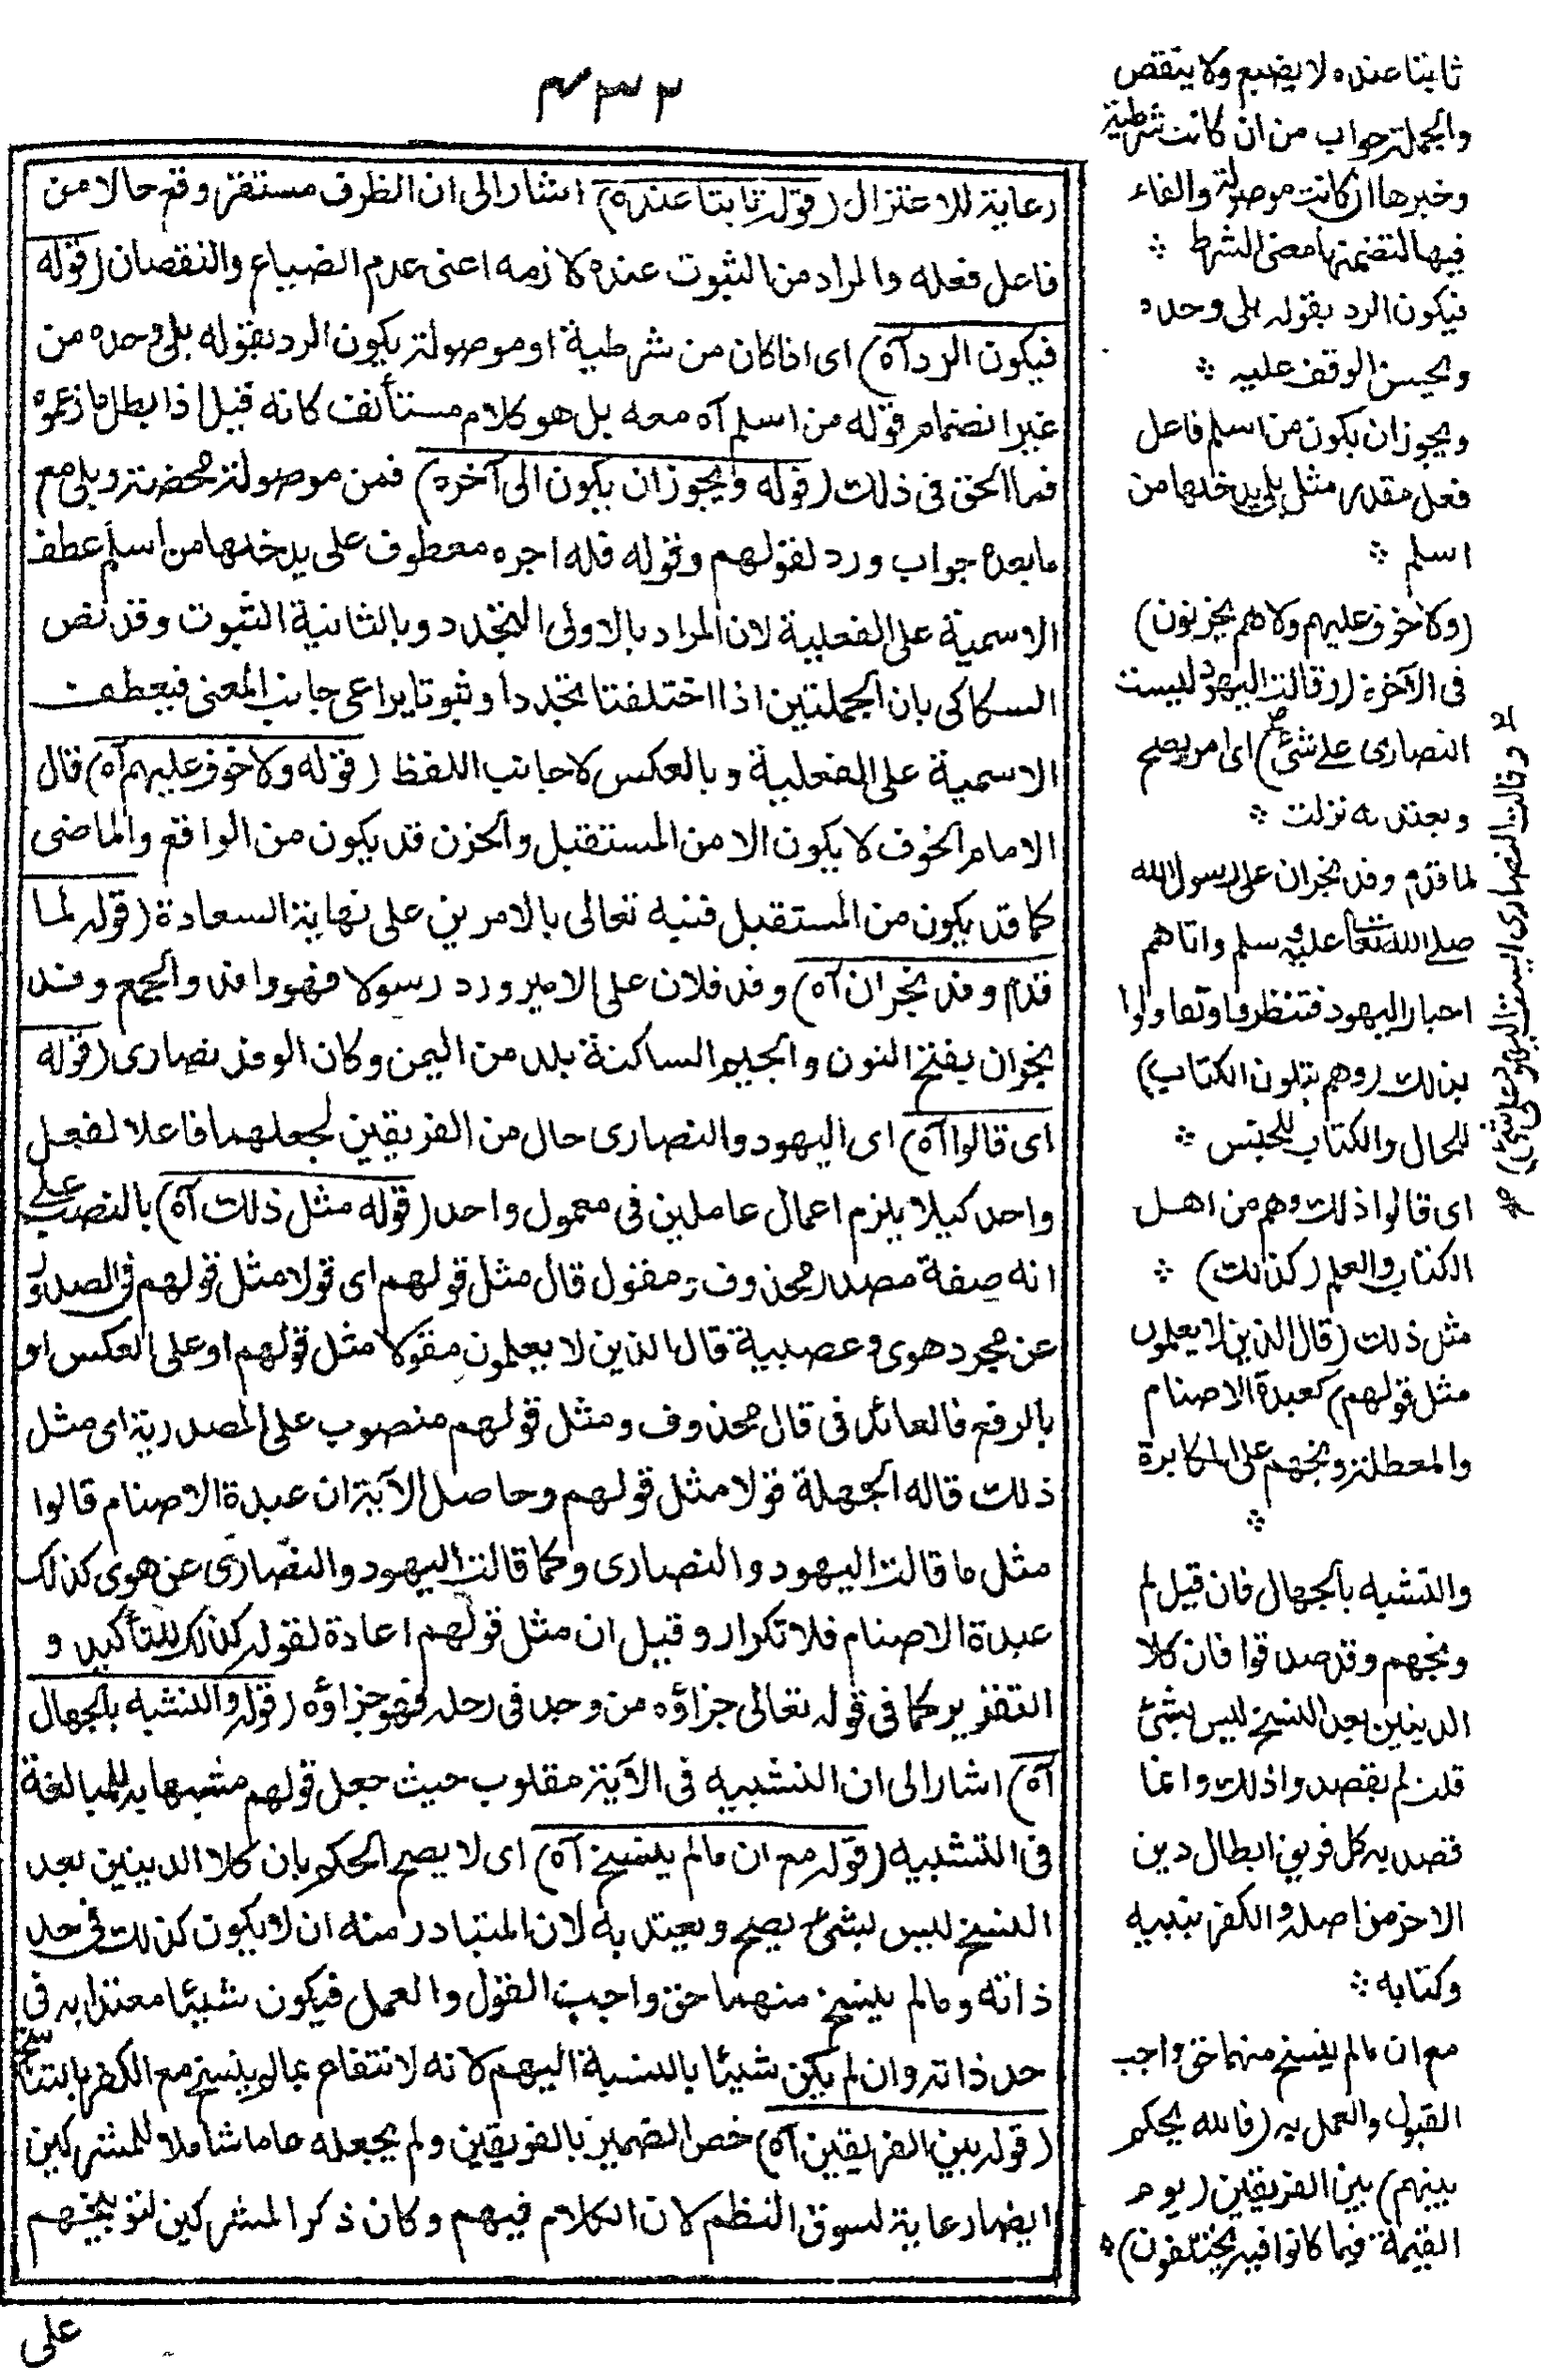 ٤٣٢
رعاية للاعتزال (قوله ثابتا عنده) اشار الى ان الظرف مستقر وقع حالا من
فاعل فعله والمراد من الثبوت عنده لازمه اعنى عدم الضياع والنقصان (قوله
فيكون الرد آه) اى اذا كان من شرطية او موصولة يكون الرد بقوله بلى وحده من
غير انضمام قوله من اسلم آه معه بل هو كلام مستأنف كانه قيل اذا بطل ما زعموه
فما الحق فى ذلك (قوله ويجوز ان يكون الى آخره) فمن موصولة محضة وبلى مع
ما بعده جواب ورد لقولهم وقوله فله اجره معطوف على يدخلها من اسلم عطف
الاسمية على الفعلية لان المراد بالاولى التجدد وبالثانية الثبوت وقد نص
السكاكى بان الجملتين اذا اختلفتا تجددا وثبوتا يراعى جانب المعنى فيعطف
الاسمية على الفعلية وبالعكس لا جانب اللفظ (قوله ولا خوف عليهم آه) قال
الامام الخوف لا يكون الا من المستقبل والحزن قد يكون من الواقع والماضى
كما قد يكون من المستقبل فنبه تعالى بالامرين على نهاية السعادة (قوله لما
قدم وفد نجران آه) وفد فلان على الامير ورد رسولا فهو وافد والجمع وفد
نجران بفتح النون والجيم الساكنة بلد من اليمن وكان الوفد نصارى (قوله
اى قالوا آه) اى اليهود والنصارى حال من الفريقين لجعلهما فاعلا لفعل
واحد كيلا يلزم اعمال عاملين فى معمول واحد (قوله مثل ذلك آه) بالنصب على
انه صفة مصدر محذوف ومفعول قال مثل قولهم اى قولا مثل قولهم فى الصدور
عن مجرد هوى وعصبية قال الذين لا يعلمون مقولا مثل قولهم او على العكس او
بالرفع فالعائد فى قال محذوف ومثل قولهم منصوب على المصدرية اى مثل
ذلك قاله الجهلة قولا مثل قولهم وحاصل الآية ان عبدة الاصنام قالوا
مثل ما قالت اليهود والنصارى وكما قالت اليهود والنصارى عن هوى كذلك
عبدة الاصنام فلا تكرار وقيل ان مثل قولهم اعادة لقوله كذلك للتأكيد و
التقرير كما فى قوله تعالى جزاؤه من وجد فى رحله فهو جزاؤه (قوله والتشبه بالجهال
آه) اشار الى ان التشبيه فى الآية مقلوب حيث جعل قولهم مشبها به للمبالغة
فى التشبيه (قوله مع ان ما لم ينسخ آه) اى لا يصح الحكم بان كلا الدينين بعد
النسخ ليس بشئ يصح ويعتد به لان المتبادر منه ان لا يكون كذلك فى حد
ذاته وما لم ينسخ منهما حق واجب القول والعمل فيكون شيئا معتدا به فى
حد ذاته وان لم يكن شيئا بالنسبة اليهم لانه لا انتفاع بما لم ينسخ مع الكفر بالناسخ
(قوله بين الفريقين آه) خص الضمير بالفريقين ولم يجعله عاما شاملا للمشركين
ايضا رعاية لسوق النظم لان الكلام فيهم وكان ذكر المشركين لتوبيخهم
على
ثابتا عنده لا يضيع ولا ينقص
والجملة جواب من ان كانت شرطية
وخبرها ان كانت موصولة والفاء
فيها لتضمنها معنى الشرط
فيكون الرد بقوله بلى وحده
ويحسن الوقف عليه
ويجوز ان يكون من اسلم فاعل
فعل مقدر مثل بلى يدخلها من
اسلم
(ولا خوف عليهم ولا هم يحزنون)
فى الآخرة (وقالت اليهود ليست
النصارى على شئ) اى امر يصح
ويعتد به نزلت
لما قدم وفد نجران على رسول الله
صلى الله تعالى عليه وسلم واتاهم
احبار اليهود فتنظروا وتقاولوا
بذلك (وهم يتلون الكتاب)
للحال والكتاب للجنس
اى قالوا ذلك وهم من اهل
الكتاب والعلم (كذلك)
مثل ذلك (قال الذين لا يعلمون
مثل قولهم) كعبدة الاصنام
والمعطلة وبخهم على المكابرة
والتشبه بالجهال فان قيل لم
وبخهم وقد صدقوا فان كلا
الدينين بعد النسخ ليس بشئ
قلت لم يقصدوا ذلك وانما
قصد به كل فريق ابطال دين
الاخر من اصله والكفر بنبيه
وكتابه
مع ان ما لم ينسخ منهما حق واجب
القبول والعمل به (فالله يحكم
بينهم) بين الفريقين (يوم
القيمة فيما كانوا فيه يختلفون)
وقالت النصارى ليست اليهود على شئ)